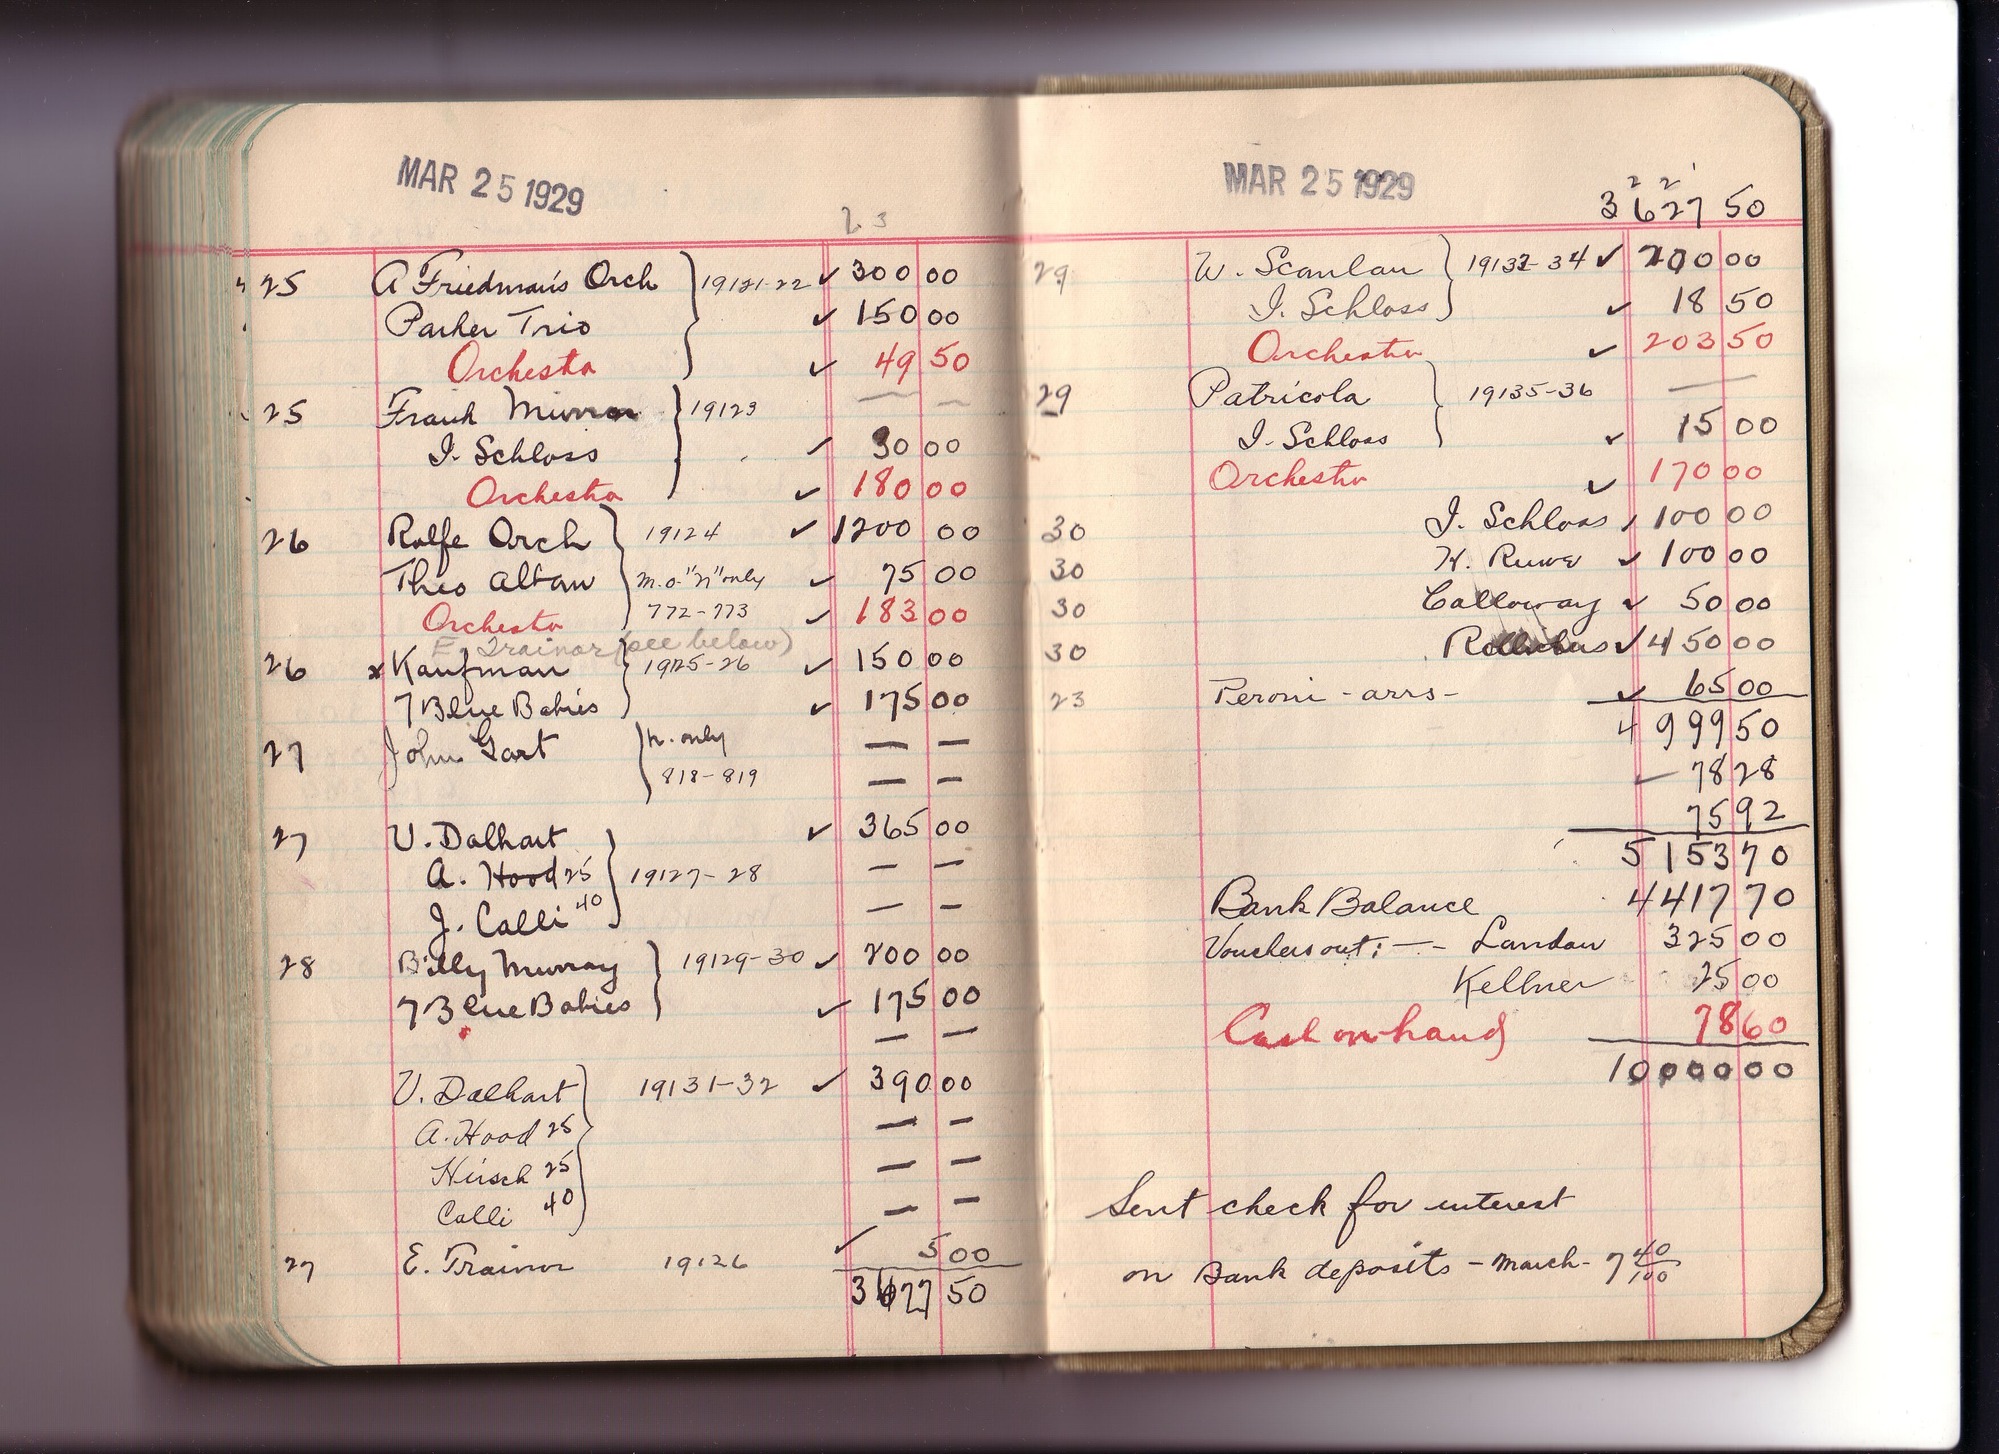 MAR 25 1929
23
25 A Friedman's Orch 19121-22 ✓ 300 00
Parker Trio ✓ 150 00
Orchestra ✓ 49 50
25 Frank Munn 19123 — —
I. Schloss ✓ 30 00
Orchestra ✓ 180 00
26 Rolfe Orch 19124 ✓ 1200 00
Theo Alban m.o. "N" only ✓ 75 00
Orchestra 772-773 ✓ 183 00
E. Trainor (see below)
26 x Kaufman 19125-26 ✓ 150 00
7 Blue Babies ✓ 175 00
27 John Gart n. only — —
818-819 — —
27 V. Dalhart ✓ 365 00
A. Hood 25 19127-28 — —
J. Calli 40 — —
28 Billy Murray 19129-30 ✓ 200 00
7 Blue Babies ✓ 175 00
— —
V. Dalhart 19131-32 ✓ 390 00
A. Hood 25 — —
Hirsch 25 — —
Calli 40 — —
27 E. Trainor 19126 ✓ 5 00
3627 50
MAR 25 1929
2 2 1
3627 50
29 W. Scanlan 19133-34 ✓ 200 00
I. Schloss ✓ 18 50
Orchestra ✓ 203 50
29 Patricola 19135-36 —
I. Schloss ✓ 15 00
Orchestra ✓ 170 00
30 I. Schloss ✓ 100 00
30 H. Ruwe ✓ 100 00
30 Calloway ✓ 50 00
30 ✓ 450 00
23 Peroni - arrs - ✓ 65 00
4999 50
78 28
75 92
5153 70
Bank Balance 4417 70
Vouchers out: — - Landau 325 00
Kellner 25 00
Cash on hand 78 60
10000 00
Sent check for interest
on Bank deposits - March - 7 40/100